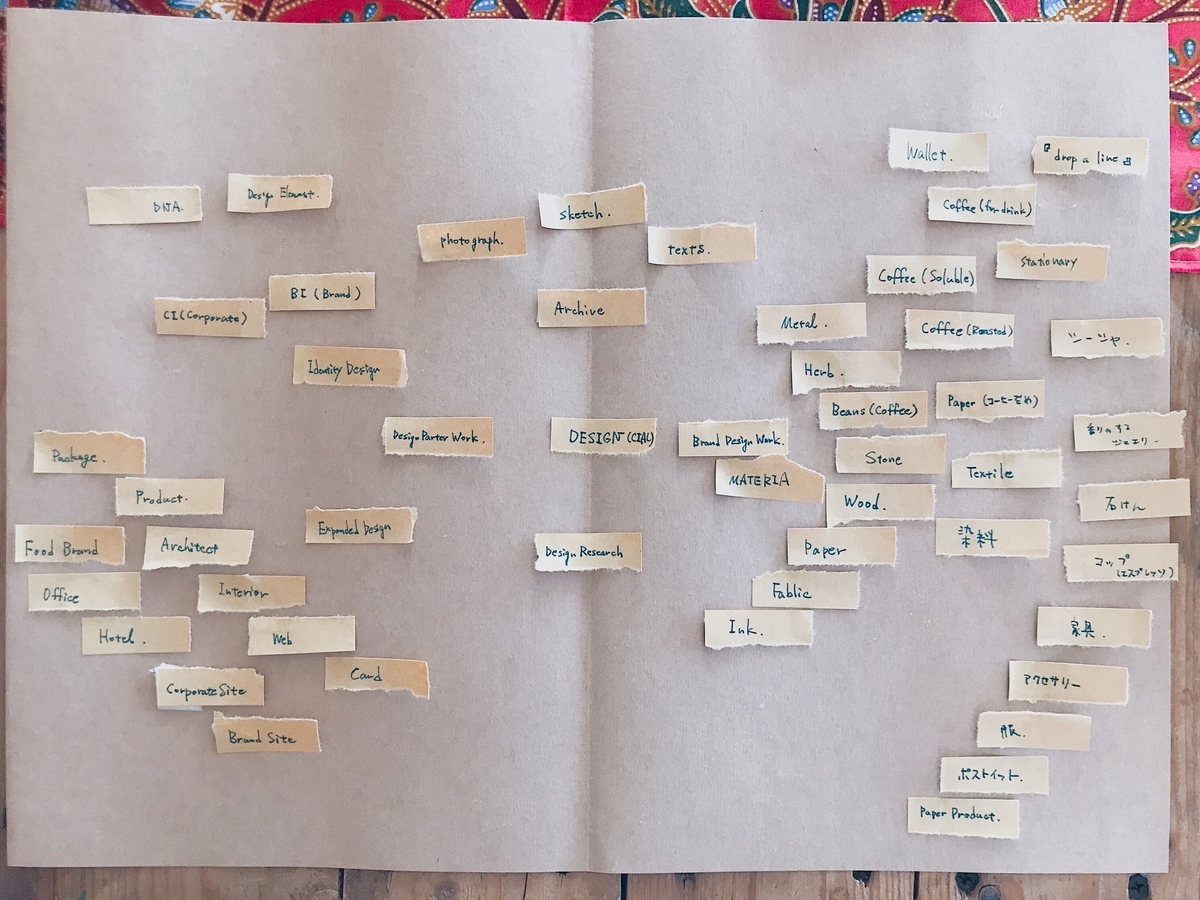 Wallet.
『drop a line』
DNA.
Design Element.
Coffee (for drink)
sketch.
photograph.
texts.
Stationary
Coffee (Soluble)
BI (Brand)
CI (Corporate)
Archive
Metal.
Coffee (Roasted)
シーシャ.
Identity Design
Herb.
Paper (コーヒーぞめ)
Beans (Coffee)
Design Parter Work.
DESIGN (CIAL)
Brand Design Work.
香りのする
ジュエリー.
Package.
Stone
Textile
MATERIA
Product.
Wood.
石けん
Expanded Design
染料
Food Brand
Architect
Design Research
Paper
コップ
(エスプレッソ)
Office
Interior
Fablic
Hotel.
Web
Ink.
家具.
Card
Corporate Site
アクセサリー
Brand Site
服.
ポストイット.
Paper Product.